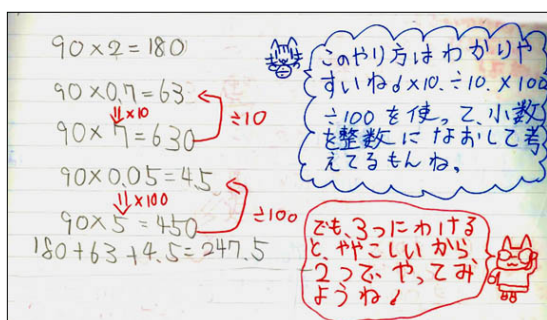 90×2=180
90×0.7=63
⇓×10
÷10
90×7=630
90×0.05=4.5
⇓×100
÷100
90×5=450
180+63+4.5=247.5
このやり方はわかりや
すいね♪×10.÷10.×100
÷100を使って、小数
を整数になおして考
えてるもんね。
でも、3つにわける
と、ややこしいから、
2つで、やってみ
ようね♪